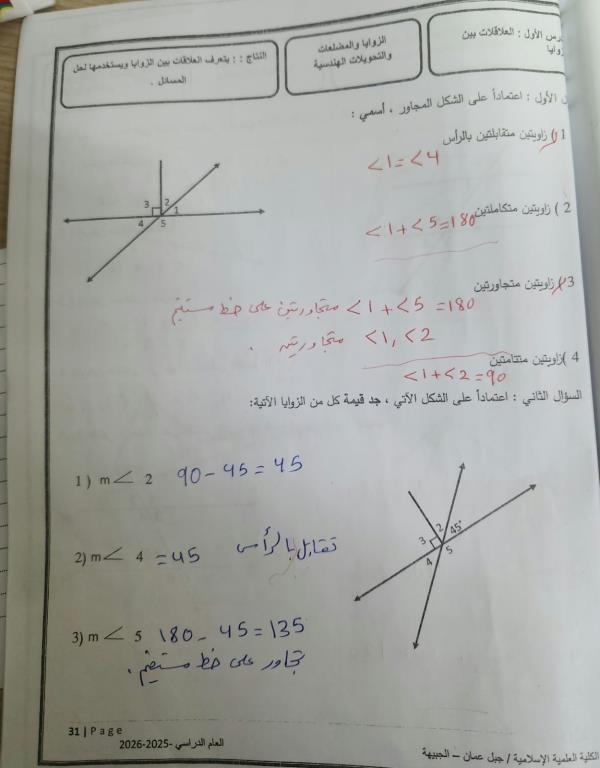 رس الأول : العلاقات بين
زوايا
الزوايا والمضلعات
والتحويلات الهندسية
النتاج : : يتعرف العلاقات بين الزوايا ويستخدمها لحل
المسائل .
الأول : اعتماداً على الشكل المجاور ، أسمي :
1 ) زاويتين متقابلتين بالرأس
<1 = <4
2 ) زاويتين متكاملتين
<1 + <5 = 180
3 ) زاويتين متجاورتين
<1 + <5 = 180 متجاورتين على خط مستقيم
<1 , <2 متجاورتين .
4 ) زاويتين متتامتين
<1 + <2 = 90
3 2 1
4 5
السؤال الثاني : اعتماداً على الشكل الآتي ، جد قيمة كل من الزوايا الآتية:
1 ) m∠ 2 90 - 45 = 45
2) m∠ 4 = 45 تقابل بالرأس
3) m∠ 5 180 - 45 = 135
تجاور على خط مستقيم .
3 2 45°
4 5
31 | Page
العام الدراسي -2025-2026
الكلية العلمية الإسلامية / جبل عمان – الجبيهة